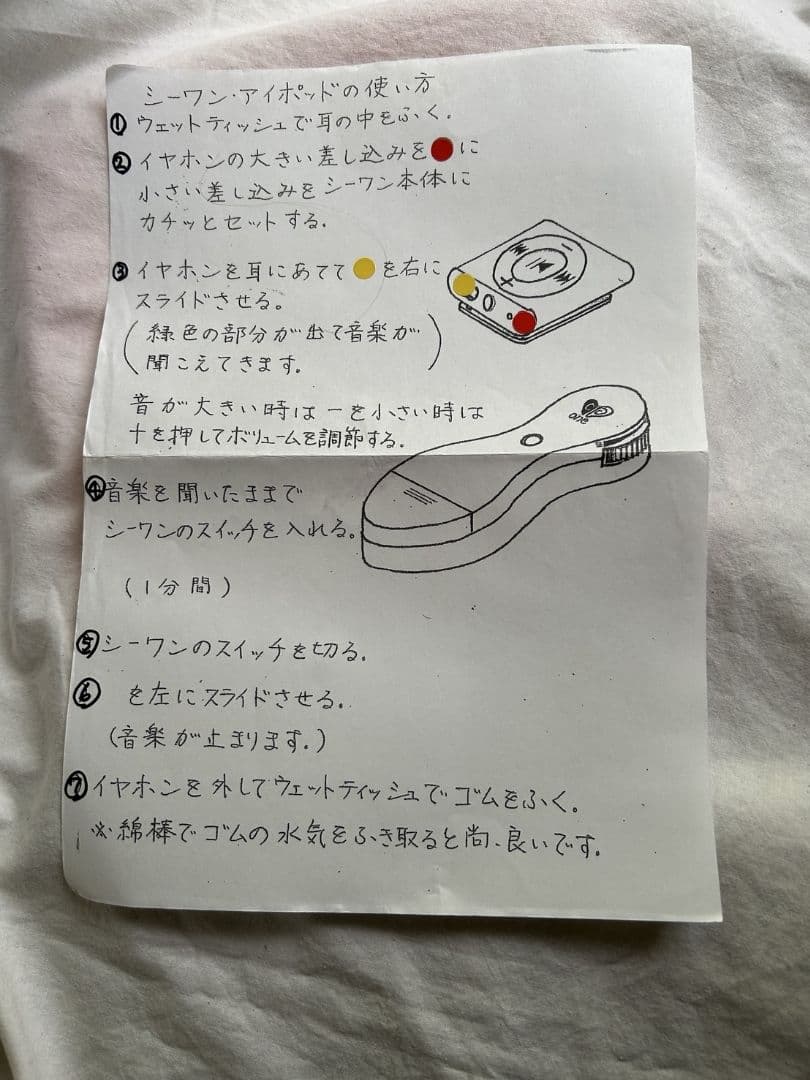 シーワン・アイポッドの使い方
① ウェットティッシュで耳の中をふく。
② イヤホンの大きい差し込みを🔴に
小さい差し込みをシーワン本体に
カチッとセットする。
③ イヤホンを耳にあてて🟡を右に
スライドさせる。
(緑色の部分が出て音楽が
聞こえてきます。)
音が大きい時は－を小さい時は
＋を押してボリュームを調節する。
④ 音楽を聞いたままで
シーワンのスイッチを入れる。
(1分間)
⑤ シーワンのスイッチを切る。
⑥ を左にスライドさせる。
(音楽が止まります。)
⑦ イヤホンを外してウェットティッシュでゴムをふく。
※綿棒でゴムの水気をふき取ると尚、良いです。
one